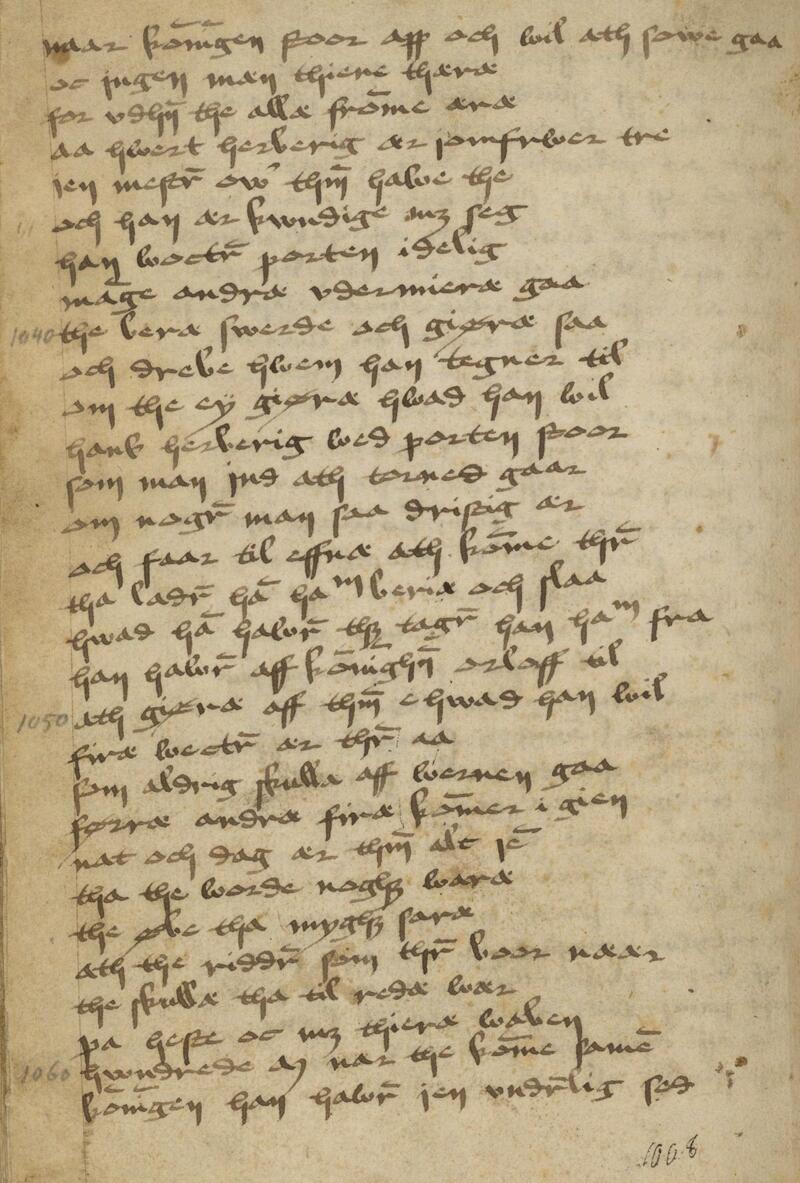 naar kōnīgen stoor app och wil ath sowe gaa
oc jngen mæn thiene thæræ
for vdhn̄ the allæ frōme æræ
aa hwert herberig ær jomfrwer tre
jen mestr̄ ow' thm̄ halve the
och han ær kwndige mꝫ seg
han woctr̄ porten idelig
māge andræ vdermieræ gaa
1040 the beræ swerde och giøræ saa
och drebe hwem han tegner til
om the ey giøræ hwad han wil
hans herberig wed porten stoor
som man jnd ath torned gaar
om nogr̄ man saa dristig ær
och faar til effnæ ath kōme thr̄
tha ladr̄ hā haᵐ beriæ och slaa
hwad hā halwr̄ thꝫ tagr̄ han haᵐ fra
han halwr̄ aff kōnīghn̄ orloff til
1050 ath giøræ aff thm̄ ehwad han wil
firæ wectr̄ ær thr̄ aa
som aldrig skulla aff wernen gaa
førræ andræ firæ kōmer i gien
nat och dag ær thm̄ alt jē
tha the worde noghꝫ waræ
the øbe tha myghꝫ saræ
ath the riddr̄ som thr̄ boor næær
the skullæ tha til redæ wær
pa heste oc mꝫ thieræ waben
1060 hwndrede m̄ nar the kōme samē
kōnīgen han halwr̄ jen vndr̄lig sed
1008